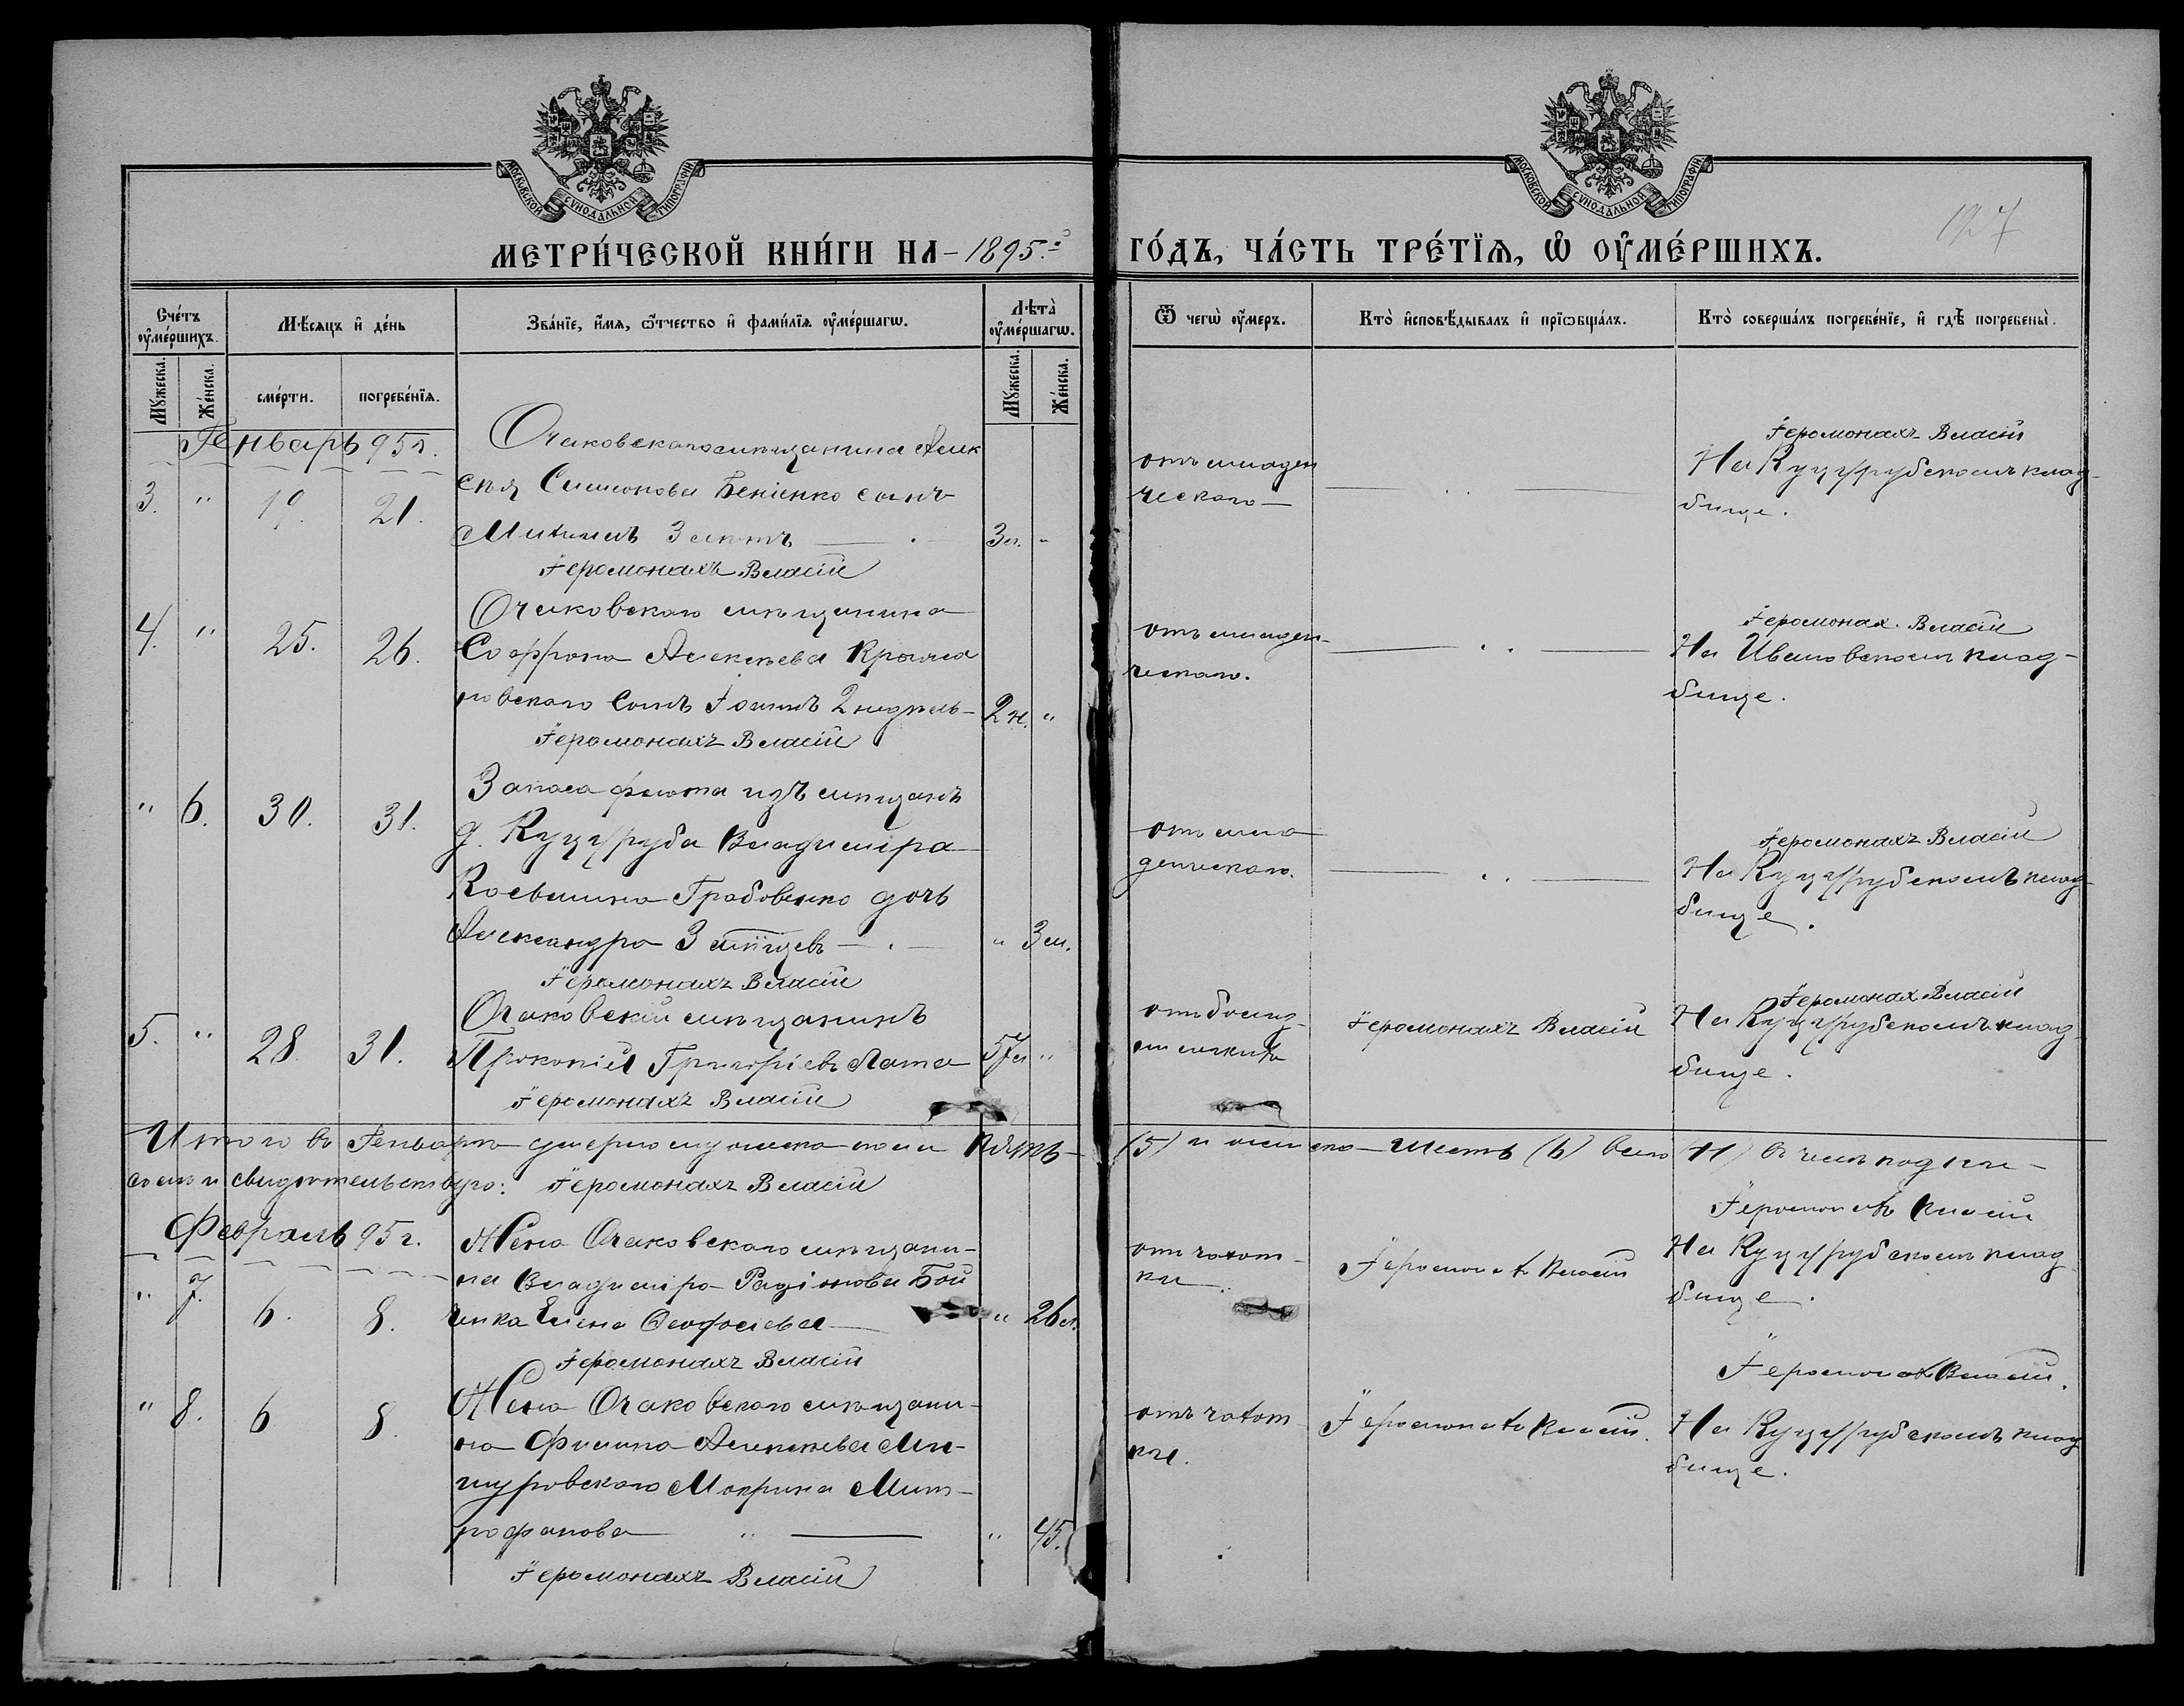 МОСКОВСКОЙ СѴНОДАЛЬНОЙ ТИПОГРАФІИ
МОСКОВСКОЙ СѴНОДАЛЬНОЙ ТИПОГРАФІИ
127
МЕТРИ́ЧЕСКОЙ КНИ́ГИ НА 1895.й ГО́ДЪ, ЧА́СТЬ ТРЕ́ТІѦ, Ѡ҆ ОУ҆МЕ́РШИХЪ.
Сче́тъ оу҆ме́ршихъ.
Мѣ́сяцъ и҆ де́нь
Зва́нїе, и҆́мѧ, ѻ҆́тчество и҆ фами́лїѧ оу҆ме́ршагѡ.
Лѣта̀ оу҆ме́ршагѡ.
Ѿ чегѡ̀ оу҆́меръ.
Кто̀ и҆сповѣ́дывалъ и҆ прїѡбща́лъ.
Кто̀ соверша́лъ погребе́нїе, и҆ гдѣ̀ погребены̀.
Мꙋ́жеска.
Же́нска.
сме́рти.
погребе́нїѧ.
Мꙋ́жеска.
Же́нска.
Генварь 95 г.
3. " 19. 21.
Очаковскаго мѣщанина Алек
сѣя Симонова Бенiенко сынъ
3 лѣтъ 3 л. "
Iеромонахъ Власій
отъ младен
ческаго
Iеромонахъ Власій
На Куцурубскомъ клад-
бище.
4. " 25. 26.
Очаковскаго мѣщанина
Софрона Алексѣева
сынъ Iоаннъ 2 недѣль 2 н. "
Iеромонахъ Власій
отъ младен-
ческаго.
Iеромонах. Власій
На Ивановскомъ клад-
бище.
" 6. 30. 31.
Запаса флота изъ мѣщанъ
д. Куцуруба Владиміра
Косьмина Грабовенко дочь
Александра 3 мѣсяцевъ " 3 м.
Iеромонахъ Власій
отъ мла
денческаго.
Iеромонахъ Власій
На Куцурубскомъ клад
бище.
5. " 28. 31.
Очаковскій мѣщанинъ
Прокопій Григоріевъ Лата 57 л "
Iеромонахъ Власій
Iеромонахъ Власій
Iеромонах Власій
На Куцурубскомъ клад
бище.
Итого въ Генварѣ умерло мужеска пола пять (5) и женска шесть (6) всего (11) въ чемъ подпи-
семъ и свидѣтельствую: Iеромонахъ Власій
Февраль 95 г.
" 7. 6. 8.
Жена Очаковскаго мѣщани-
на Владиміра Радіонова Бой
ченка Елена Феофоліева " 26 л.
Iеромонахъ Власій
отъ чахот-
ки
Iеромонахъ Власій
Iеромонахъ Власій
На Куцурубскомъ клад
бище.
" 8. 6 8.
Жена Очаковскаго мѣщани-
на Филипа Алексѣева Ми-
щуровскаго Макрина Мит-
рофанова " 45.
Iеромонахъ Власій
отъ чахот
ки.
Iеромонахъ Власій.
Iеромонахъ Власій.
На Куцурубскомъ клад
бище.